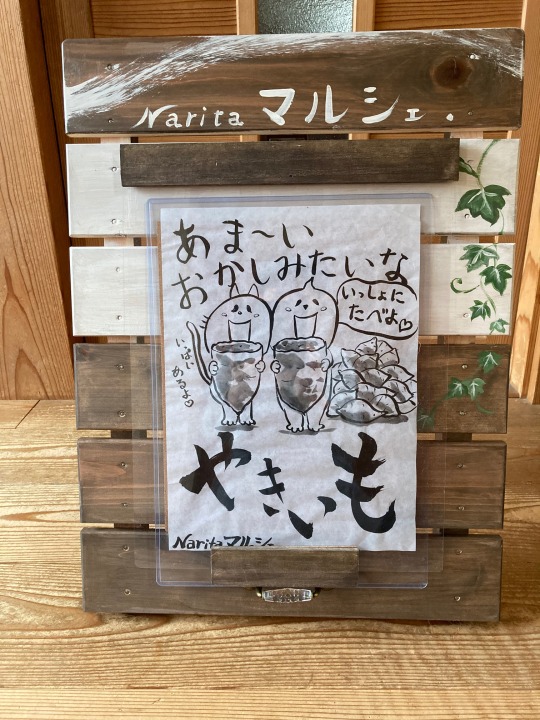 Narita マルシェ.
あま〜い
おかしみたいな
いっしょに
たべよ♡
いっぱい
あるよ♡
やきいも
Naritaマルシェ